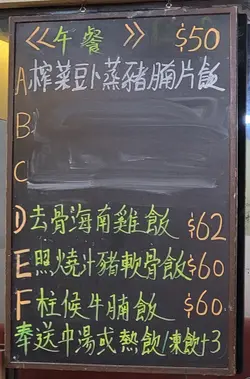 《午餐》 $50
A 榨菜豆卜蒸豬腩片飯
B
C
D 去骨海南雞飯 $62
E 照燒汁豬軟骨飯 $60
F 柱侯牛腩飯 $60
奉送中湯或熱飲/凍飲+3